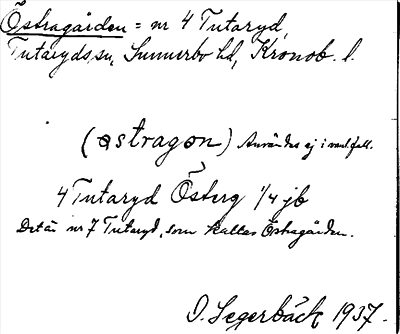 Östragården = nr 4 Tutaryd,
Tutaryds sn, Sunnerbo hd, Kronob. l.
(ɷstragon) Användes ej i mulfall.
4 Tutaryd Österg 1/4 jb
Det är nr 7 Tutaryd, som kallas Östragården.
O. Segerbäck 1937.